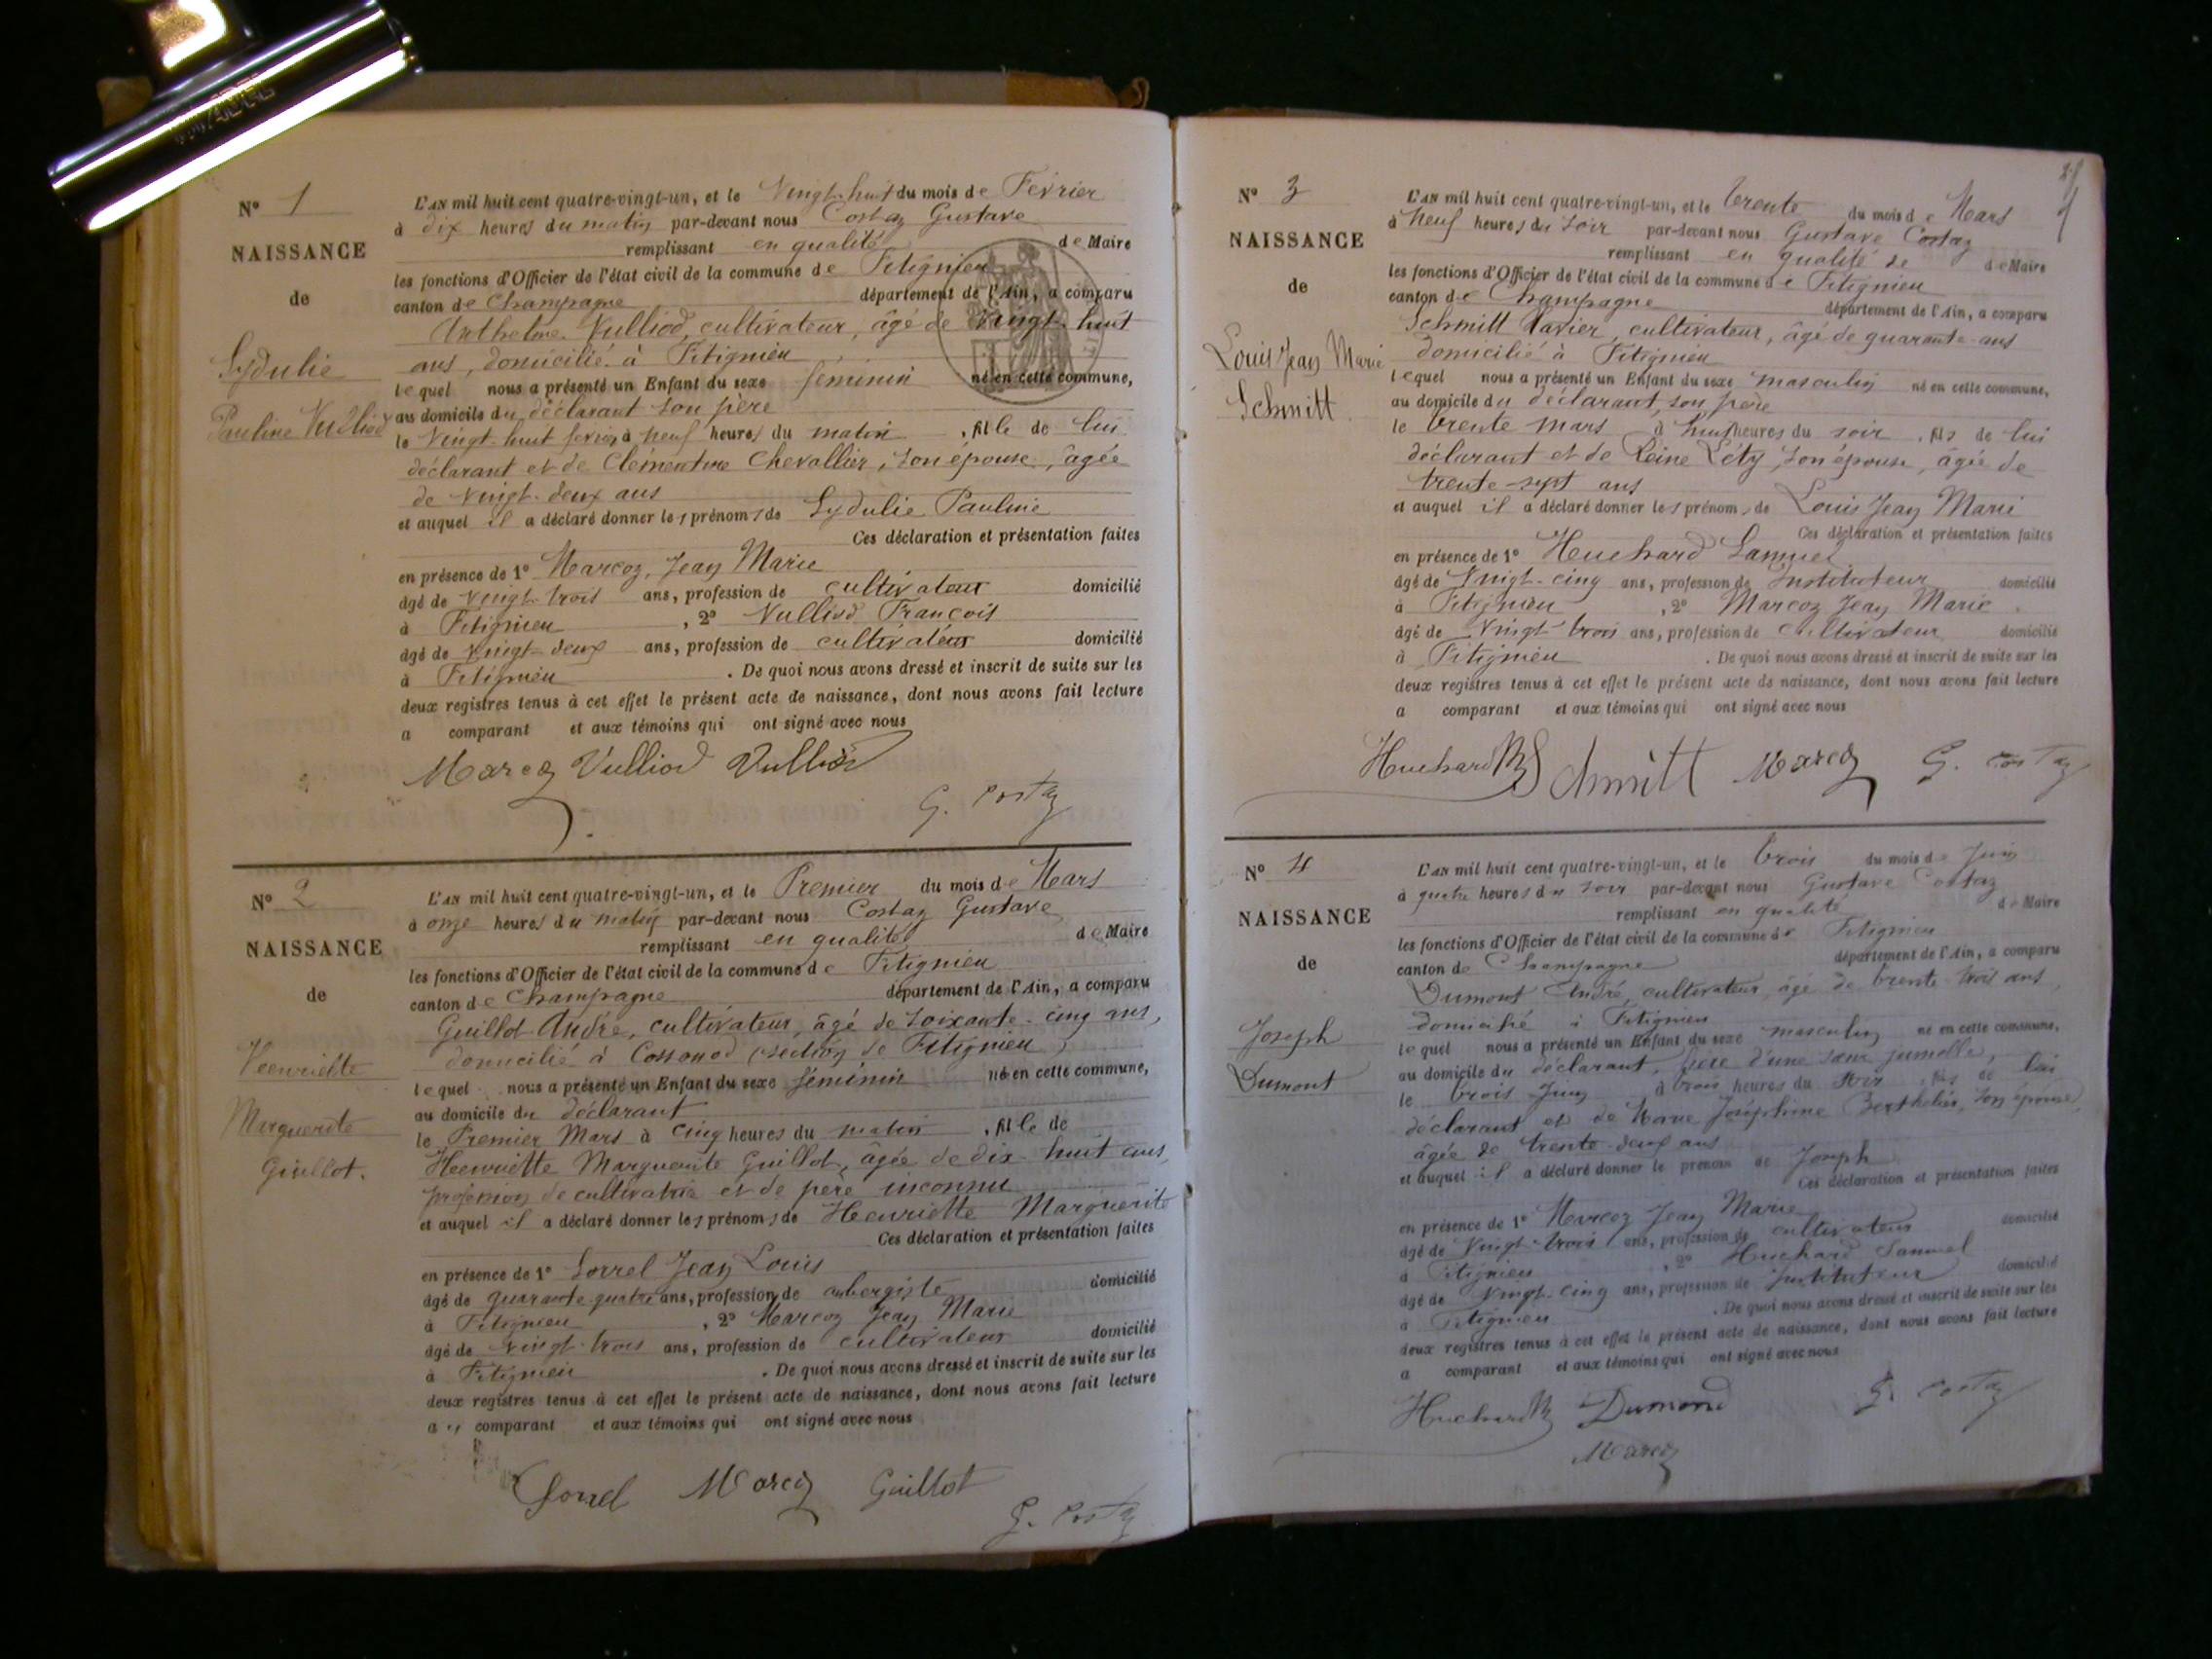 N° 1
NAISSANCE
de
Lydulie
Pauline Vulliod
L'AN mil huit cent quatre-vingt-un, et le Vingt-huit du mois de Février
à dix heures du matin par-devant nous Costaz Gustave
remplissant en qualité de Maire
les fonctions d'Officier de l'état civil de la commune de Fitignieu
canton de Champagne département de l'Ain, a comparu
Anthelme Vulliod, cultivateur, âgé de vingt-huit
ans, domicilié à Fitignieu
lequel nous a présenté un Enfant du sexe féminin né en cette commune,
au domicile du déclarant son père
le Vingt-huit février à neuf heures du matin, fille de lui
déclarant et de Clémentine Chevallier, son épouse, âgée
de vingt-deux ans
et auquel il a déclaré donner les prénoms de Lydulie Pauline
Ces déclaration et présentation faites
en présence de 1° Marcoz, Jean Marie
âgé de vingt-trois ans, profession de cultivateur domicilié
à Fitignieu, 2° Vulliod François
âgé de vingt-deux ans, profession de cultivateur domicilié
à Fitignieu. De quoi nous avons dressé et inscrit de suite sur les
deux registres tenus à cet effet le présent acte de naissance, dont nous avons fait lecture
a comparant et aux témoins qui ont signé avec nous
Marcoz Vulliod Vulliod
G. Costaz
N° 2
NAISSANCE
de
Henriette
Marguerite
Guillot.
L'AN mil huit cent quatre-vingt-un, et le Premier du mois de Mars
à onze heures du matin par-devant nous Costaz Gustave
remplissant en qualité de Maire
les fonctions d'Officier de l'état civil de la commune de Fitignieu
canton de Champagne département de l'Ain, a comparu
Guillot André, cultivateur, âgé de soixante-cinq ans,
domicilié à Cossonod (section de Fitignieu)
lequel nous a présenté un Enfant du sexe féminin né en cette commune,
au domicile du déclarant
le Premier Mars à cinq heures du matin, fille de
Henriette Marguerite Guillot, âgée de dix-huit ans,
profession de cultivatrice et de père inconnu
et auquel il a déclaré donner les prénoms de Henriette Marguerite
Ces déclaration et présentation faites
en présence de 1° Sorrel Jean Louis
âgé de quarante-quatre ans, profession de aubergiste domicilié
à Fitignieu, 2° Marcoz Jean Marie
âgé de vingt-trois ans, profession de cultivateur domicilié
à Fitignieu. De quoi nous avons dressé et inscrit de suite sur les
deux registres tenus à cet effet le présent acte de naissance, dont nous avons fait lecture
a comparant et aux témoins qui ont signé avec nous
Sorrel Marcoz Guillot
G. Costaz
N° 3
NAISSANCE
de
Louis Jean Marie
Schmitt
L'AN mil huit cent quatre-vingt-un, et le trente du mois de Mars
à neuf heures du soir par-devant nous Gustave Costaz
remplissant en qualité de de Maire
les fonctions d'Officier de l'état civil de la commune de Fitignieu
canton de Champagne département de l'Ain, a comparu
Schmitt Xavier, cultivateur, âgé de quarante ans
domicilié à Fitignieu
lequel nous a présenté un Enfant du sexe masculin né en cette commune,
au domicile du déclarant, son père
le trente mars à heures du soir, fils de lui
déclarant et de Reine Léty, son épouse, âgée de
trente-sept ans
et auquel il a déclaré donner les prénoms de Louis Jean Marie
Ces déclaration et présentation faites
en présence de 1° Huchard Samuel
âgé de vingt-cinq ans, profession de Instituteur domicilié
à Fitignieu, 2° Marcoz Jean Marie
âgé de vingt-trois ans, profession de cultivateur domicilié
à Fitignieu. De quoi nous avons dressé et inscrit de suite sur les
deux registres tenus à cet effet le présent acte de naissance, dont nous avons fait lecture
a comparant et aux témoins qui ont signé avec nous
Huchard Schmitt Marcoz G. Costaz
N° 4
NAISSANCE
de
Joseph
Dumont
L'AN mil huit cent quatre-vingt-un, et le trois du mois de Juin
à quatre heures du soir par-devant nous Gustave Costaz
remplissant en qualité de Maire
les fonctions d'Officier de l'état civil de la commune de Fitignieu
canton de Champagne département de l'Ain, a comparu
Dumont André, cultivateur, âgé de trente-trois ans,
domicilié à Fitignieu
lequel nous a présenté un Enfant du sexe masculin né en cette commune,
au domicile du déclarant, frère d'une sœur jumelle,
le trois Juin à trois heures du soir, fils de lui
déclarant et de Marie Joséphine Berthelier, son épouse,
âgée de trente-deux ans
et auquel il a déclaré donner le prénom de Joseph
Ces déclaration et présentation faites
en présence de 1° Marcoz Jean Marie
âgé de vingt-trois ans, profession de cultivateur domicilié
à Fitignieu, 2° Huchard Samuel
âgé de vingt-cinq ans, profession de Instituteur domicilié
à Fitignieu. De quoi nous avons dressé et inscrit de suite sur les
deux registres tenus à cet effet le présent acte de naissance, dont nous avons fait lecture
a comparant et aux témoins qui ont signé avec nous
Huchard Dumond G. Costaz
Marcoz